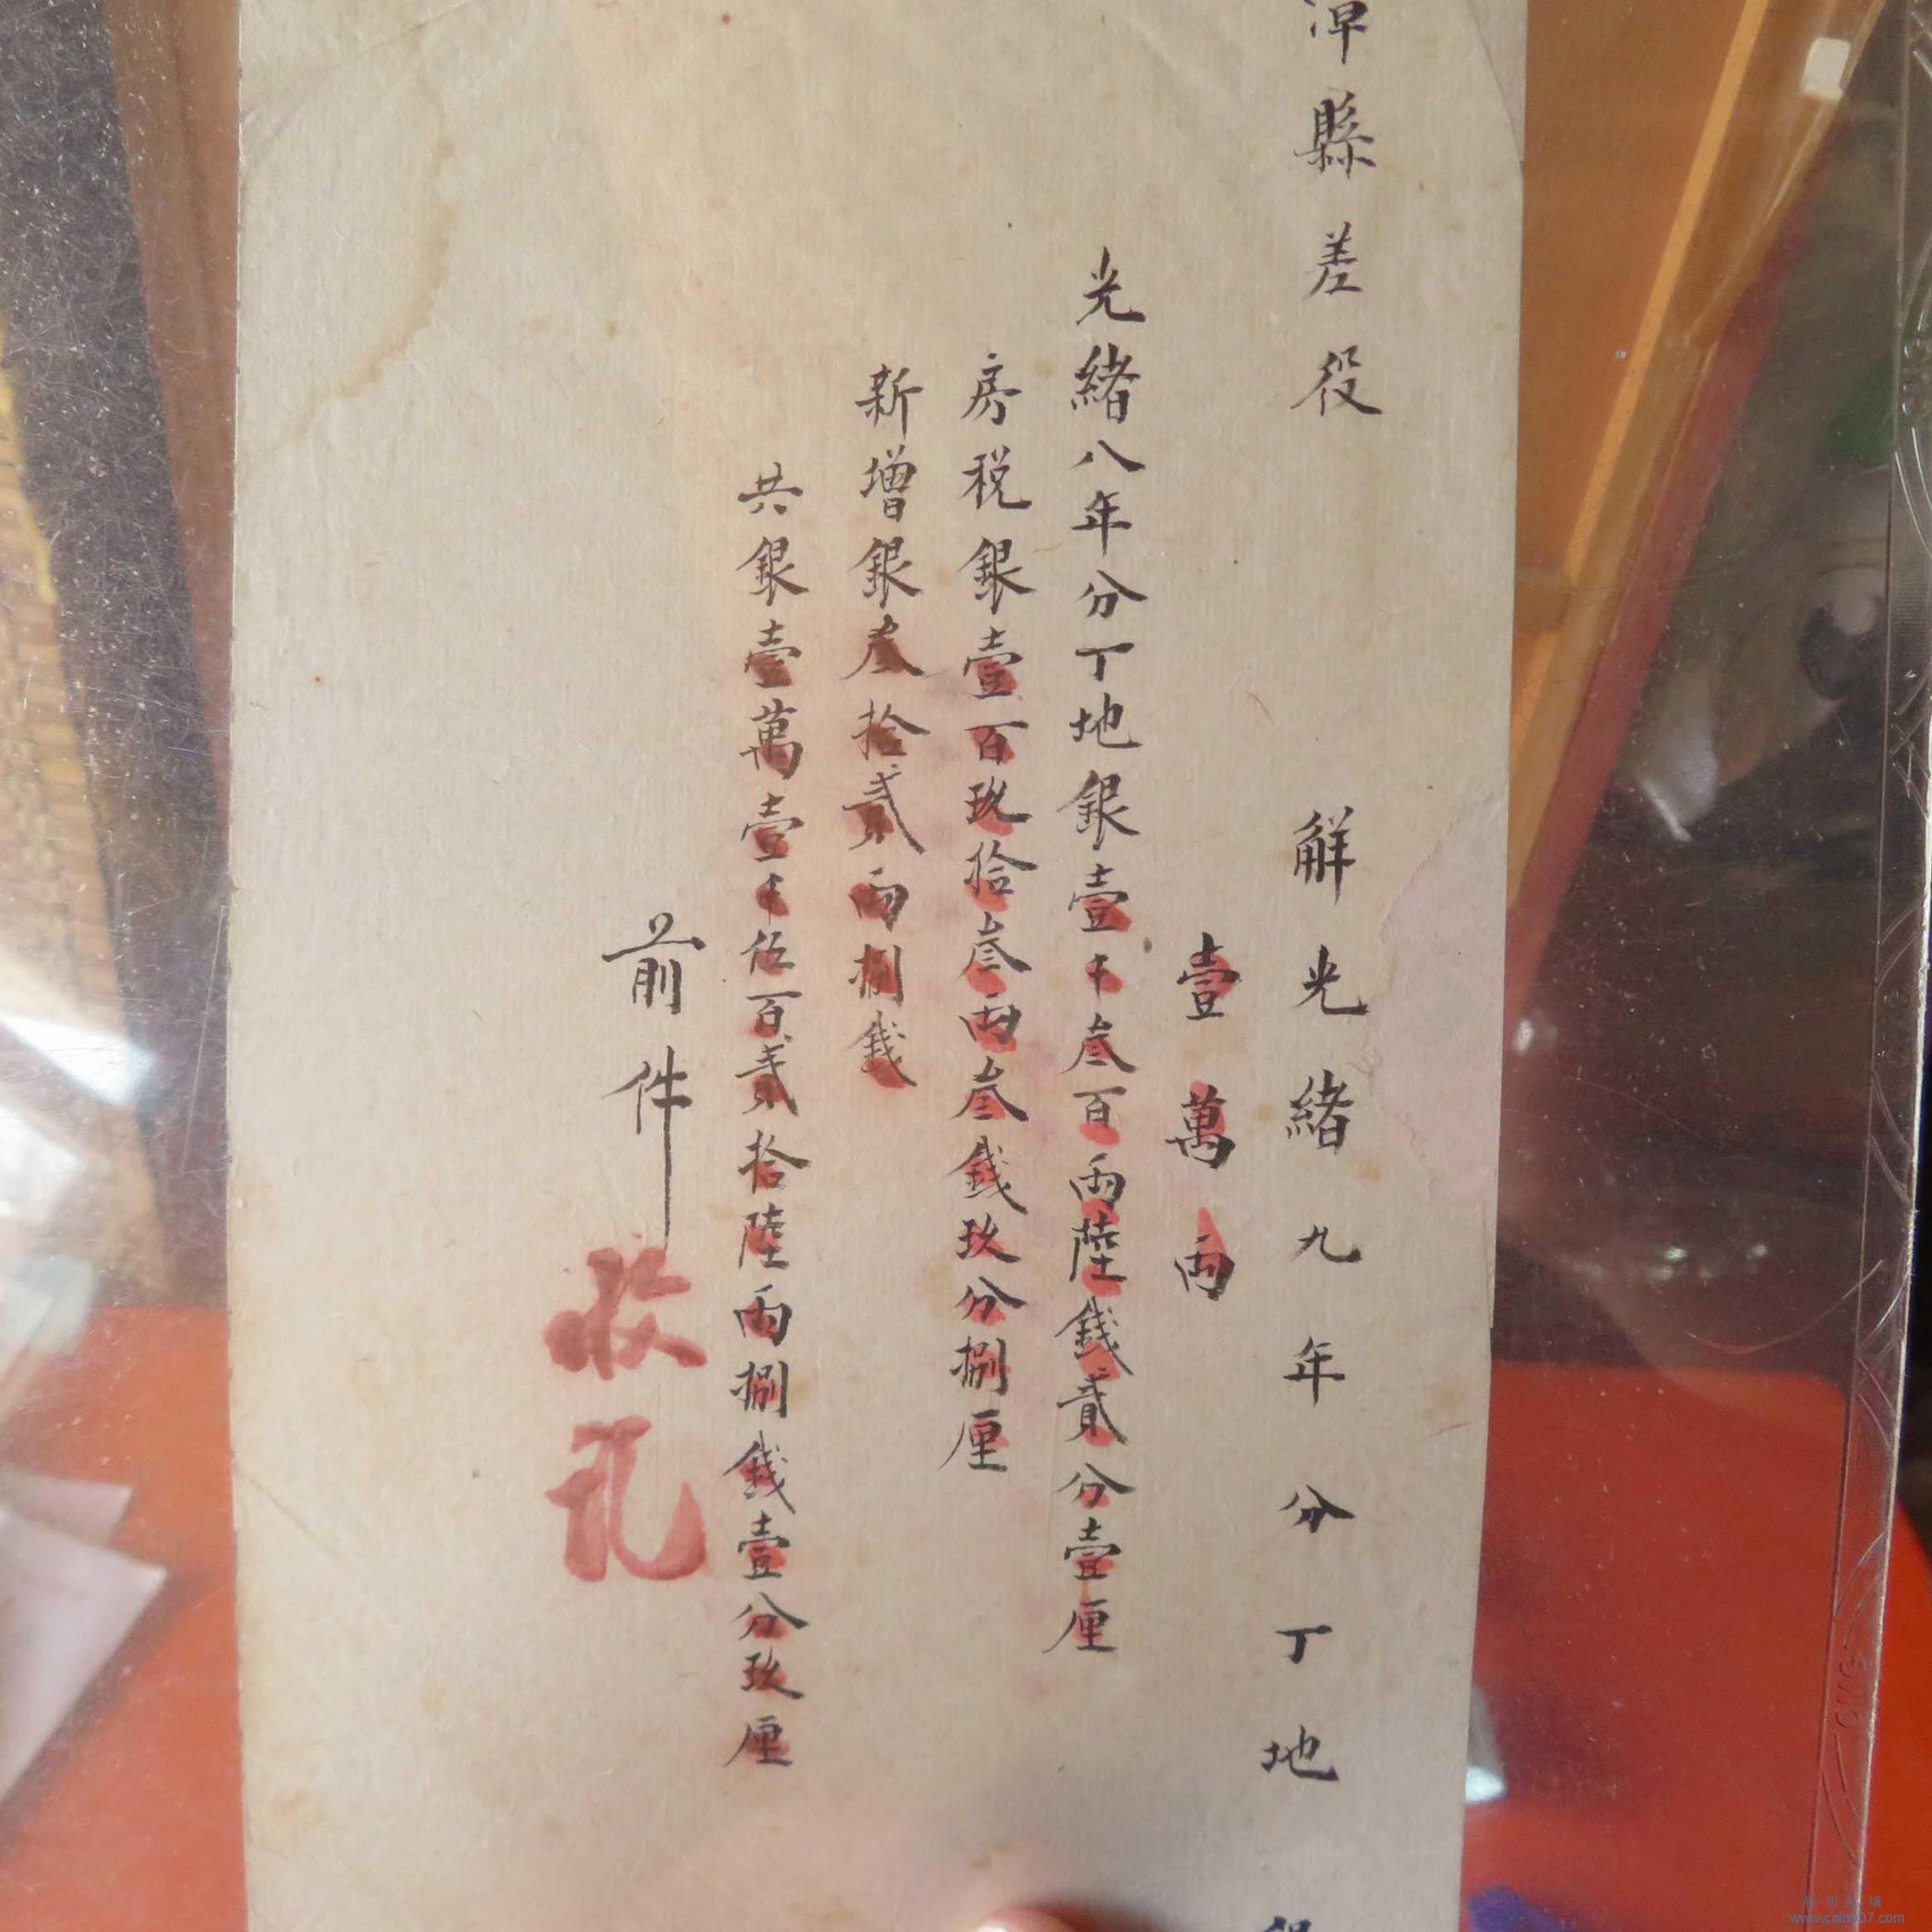 縣差役 解光緒九年分丁地
壹萬兩
光緒八年分丁地銀壹千叁百兩陸錢貳分壹厘
房税銀壹百玖拾叁兩叁錢玖分捌厘
新增銀叁拾貳兩捌錢
共銀壹萬壹千伍百貳拾陸兩捌錢壹分玖厘
前件收訖
www.coin007.com